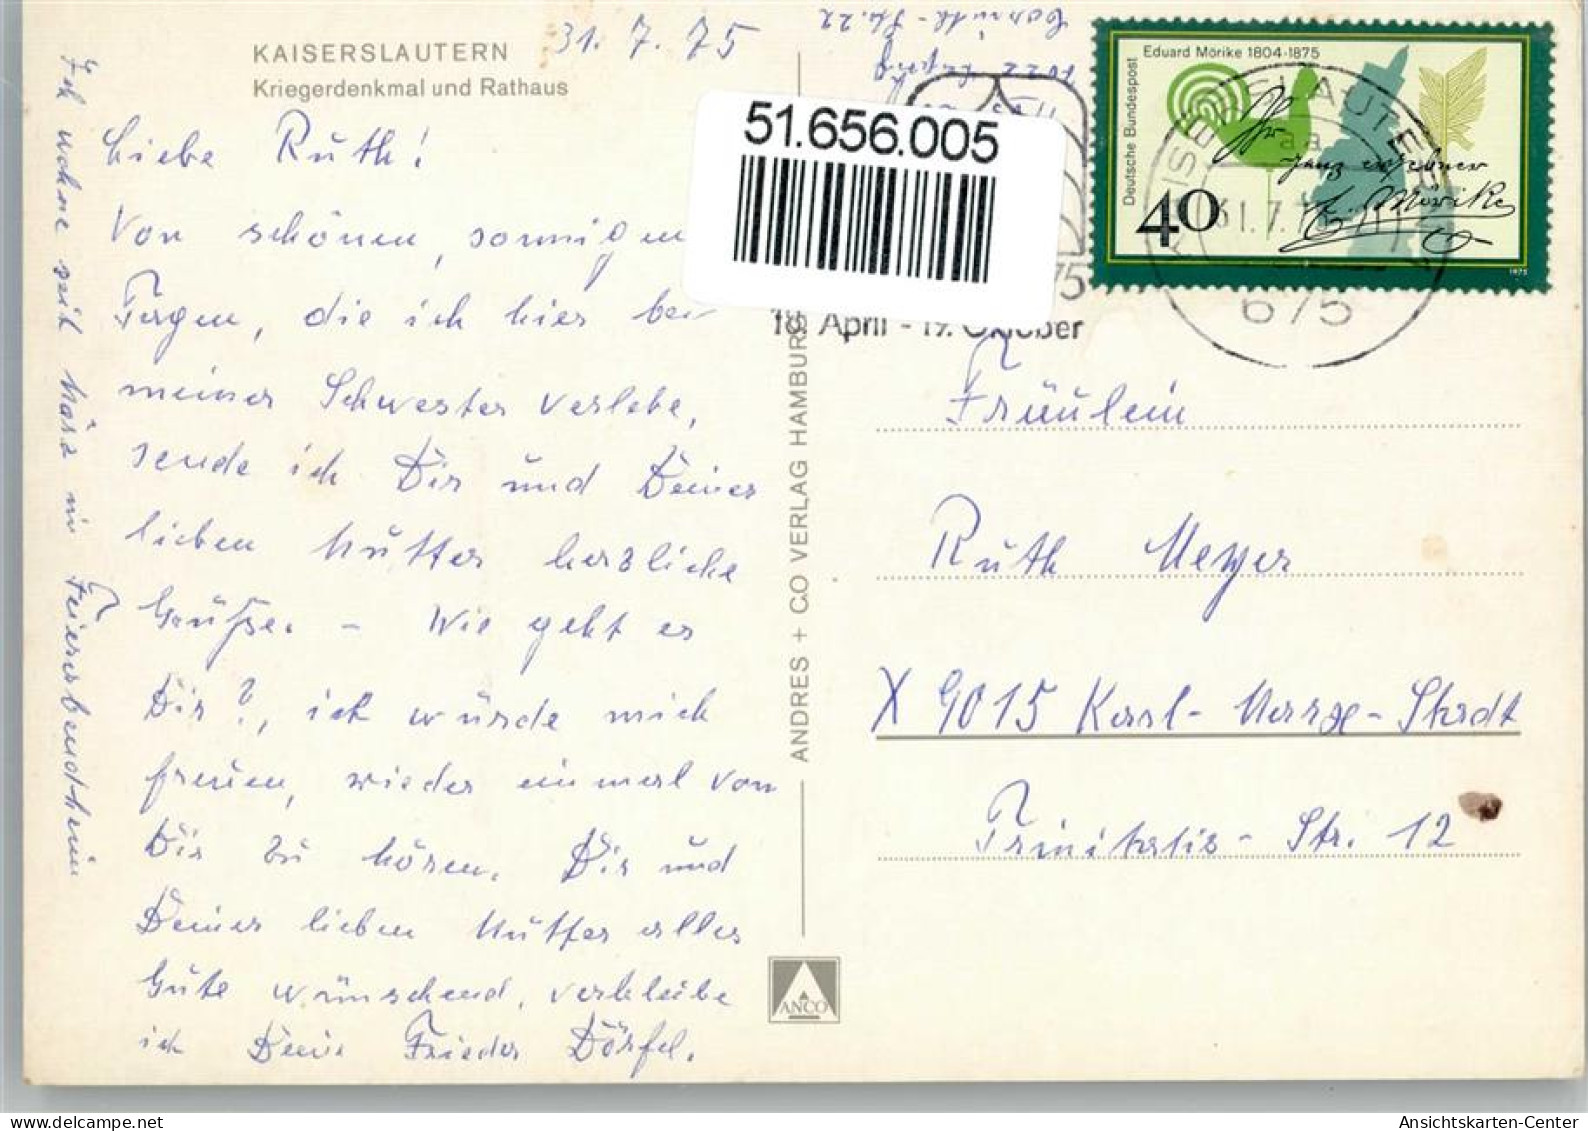 KAISERSLAUTERN
Kriegerdenkmal und Rathaus
31. 7. 75
Liebe Ruth!
Von schönen, sonnigen
Tagen, die ich hier bei
meiner Schwester verlebe,
sende ich Dir und Deiner
lieben Mutter herzliche
Grüße. – Wie geht es
Dir?, ich würde mich
freuen, wieder einmal von
Dir zu hören. Dir und
Deiner lieben Mutter alles
Gute wünschend, verbleibe
ich Dein Frieder Dörfel.
Ich wohne seit März im Feierabendheim
7022 Leipzig
Str. 22
51.656.005
ANDRES + CO VERLAG HAMBURG
ANCO
Eduard Mörike 1804-1875
Deutsche Bundespost
40
1975
KAISERSLAUTERN
aa
31.7.75
675
18. April - 19. Oktober
Fräulein
Ruth Meyer
X 9015 Karl-Marx-Stadt
Trinitatis-Str. 12
Ansichtskarten-Center.com
Ansichtskarten-Center